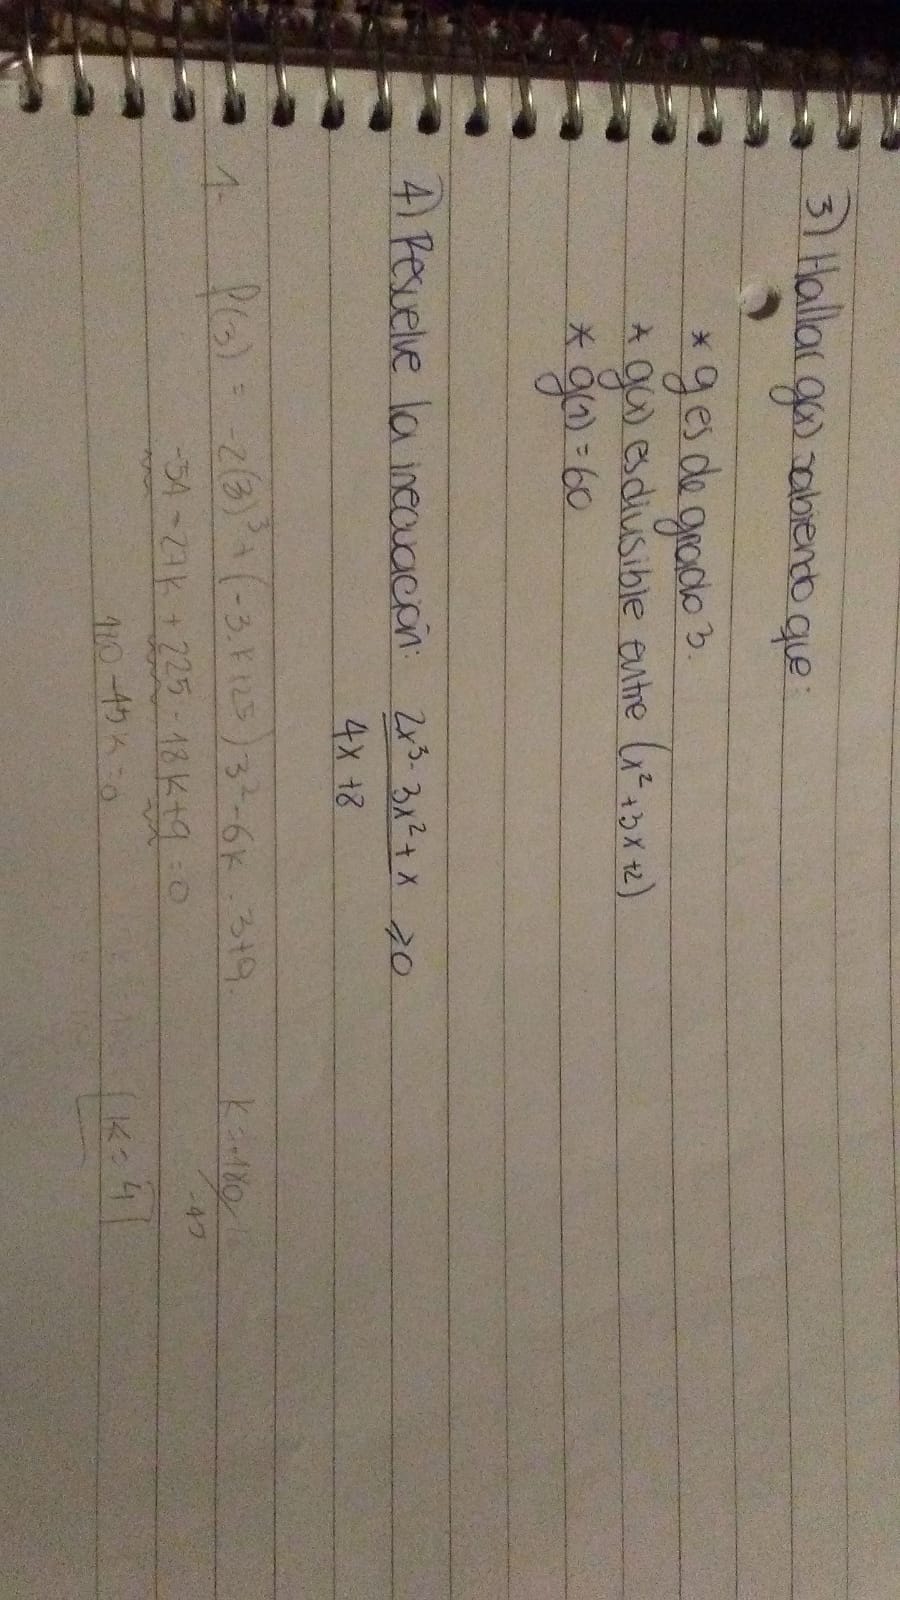 3) Hallar g(x) sabiendo que:
* g es de grado 3.
* g(x) es divisible entre (x²+3x+2)
* g(1) = 60
4) Resuelve la inecuación: 2x³- 3x²+ x ≥0
4x +8
1- P(3) = -2(3)³+(-3.k+25)3²-6k.3+9. k=-180/
-45
-54 -27k + 225 -18k+9 =0
180 -45k=0 k= 4